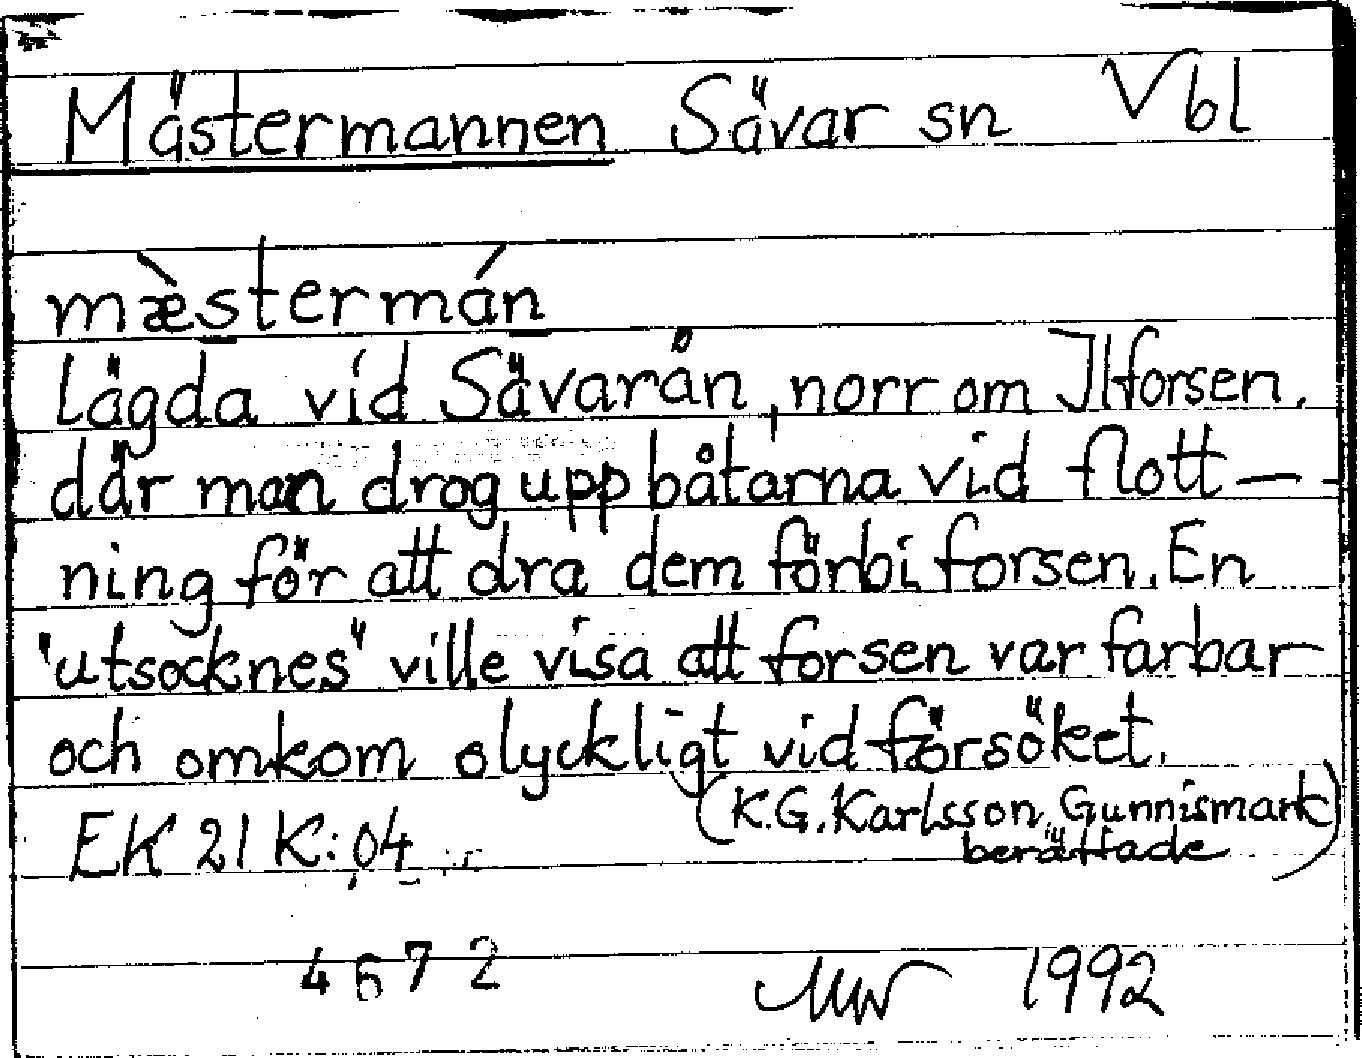 Mästermannen Sävar sn Vbl
mæ̀stermán
Lägda vid Sävarån, norr om Ilforsen,
där man drog upp båtarna vid flott-
ning för att dra dem förbi forsen. En
"utsocknes" ville visa att forsen var farbar
och omkom olyckligt vid försöket.
(K.G. Karlsson, Gunnismark
berättade)
EK 21 K:04
4672 1992